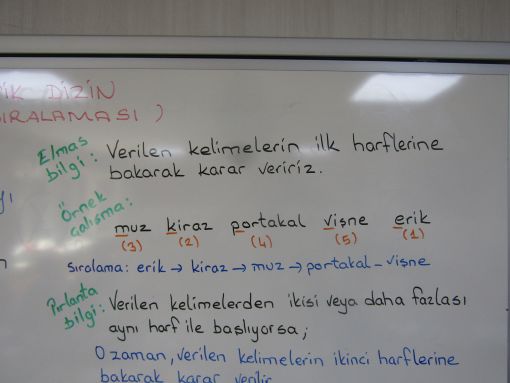 İK DİZİN
SIRALAMASI )
Elmas bilgi: Verilen kelimelerin ilk harflerine
bakarak karar veririz.
Örnek çalışma:
muz kiraz portakal vişne erik
(3) (2) (4) (5) (1)
Sıralama: erik → kiraz → muz → portakal - vişne
Pırlanta bilgi: Verilen kelimelerden ikisi veya daha fazlası
aynı harf ile başlıyorsa;
O zaman, verilen kelimelerin ikinci harflerine
bakarak karar verilir